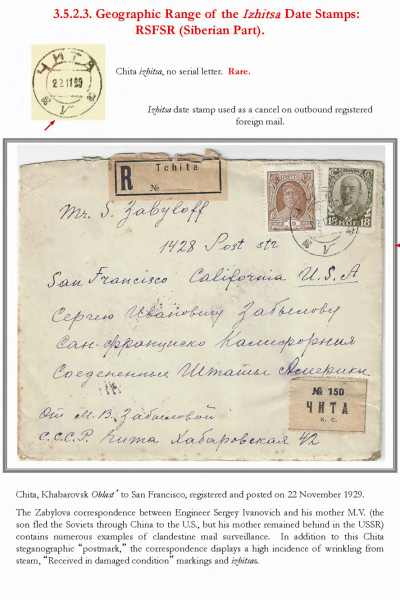 3.5.2.3. Geographic Range of the Izhitsa Date Stamps:
RSFSR (Siberian Part).
ЧИТА
22 11 29
V
Chita izhitsa, no serial letter. Rare.
Izhitsa date stamp used as a cancel on outbound registered
foreign mail.
R
Tchita
№
Mr. S. Zabyloff
1428 Post str
San Francisco California U.S.A
Сергею Ивановичу Забылову
Сан-франциско Калифорния
Соедененные Штаты Америки
От М.В. Забыловой
С.С.С.Р. Чита Хабаровская 42
№ 150
ЧИТА
К. С.
18
Chita, Khabarovsk Oblast' to San Francisco, registered and posted on 22 November 1929.
The Zabylova correspondence between Engineer Sergey Ivanovich and his mother M.V. (the
son fled the Soviets through China to the U.S., but his mother remained behind in the USSR)
contains numerous examples of clandestine mail surveillance. In addition to this Chita
steganographic "postmark," the correspondence displays a high incidence of wrinkling from
steam, "Received in damaged condition" markings and izhitsas.